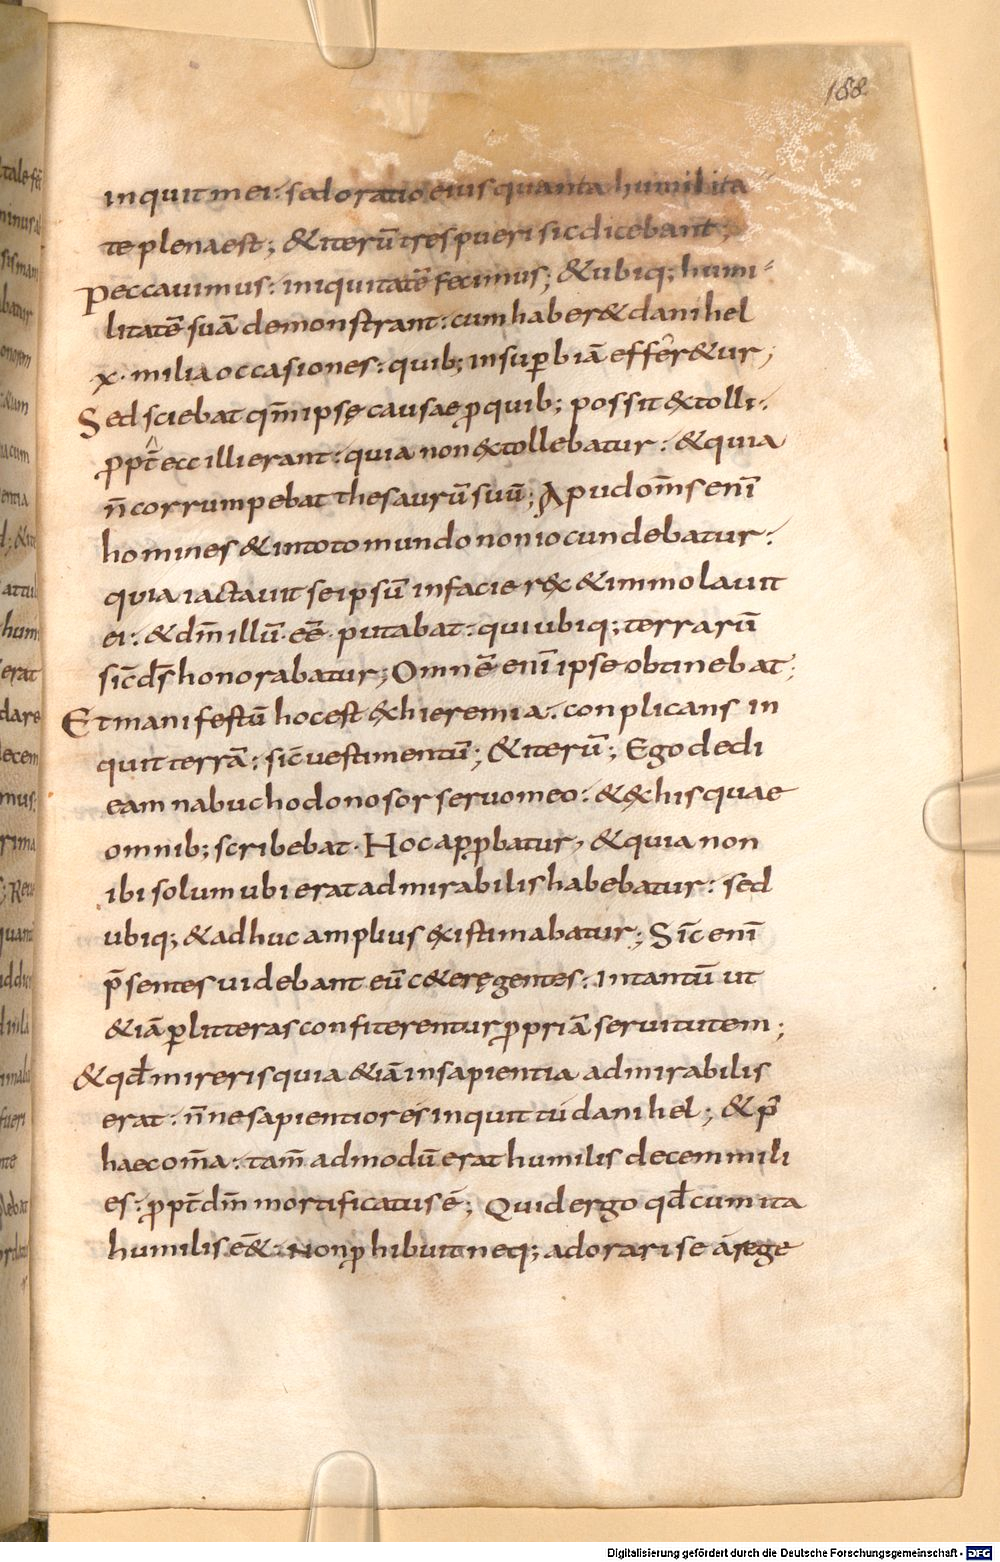 188
inquit mei: sed oratio eius quanta humilita
te plena est; & iterū tres pueri sic dicebant;
Peccauimus: iniquitatē fecimus; & ubiq; humi-
litatē suā demonstrant: cum haber& danihel
x· milia occasiones: quib; in suꝑbiā efferr&ur;
Sed sciebat qm̄ ipsę causae ꝓ quib; possit &tolli:
ꝓpt̄ ecc illi erant: quia non &tollebatur: & quia
n̄ corrumpebat thesaurū suū; Apud om̄s enī
homines & in toto mundo non iocundebatur:
quia iactauit se ipsū in facie r&x & immolauit
ei: & dm̄ illū· eē· putabat: qui ubiq; terrarū
sic̄ ds̄ honorabatur; Omnē enī ipse obtinebat;
Et manifestū hoc est &x hieremia: conplicans in
quit terrā: sic̄ uestimentū; & iterū; Ego dedi
eam nabuchodonosor seruo meo: & ex his quae
omnib; scribebat· Hoc apꝓbatur, & quia non
ibi solum ubi erat admirabilis habebatur: sed
ubiq; & adhuc amplius existimabatur; Sic̄ enī
p̄sentes uidebant eū c&erę gentes: Intantū ut
&iā ꝑ litteras confiterentur ꝓpriā seruitutem;
& qd̄ mireris quia &iā in sapientia admirabilis
erat: n̄ne sapientiores inquit tú danihel; & p̄
haec om̄a: tam̄ admodū erat humilis decem mili
es: ꝓpt̄ dm̄ mortificatus ē; Quid ergo qd̄ cum ita
humilis eē&: Non ꝓhibuit neq; adorari se á rege
Digitalisierung gefördert durch die Deutsche Forschungsgemeinschaft - DFG